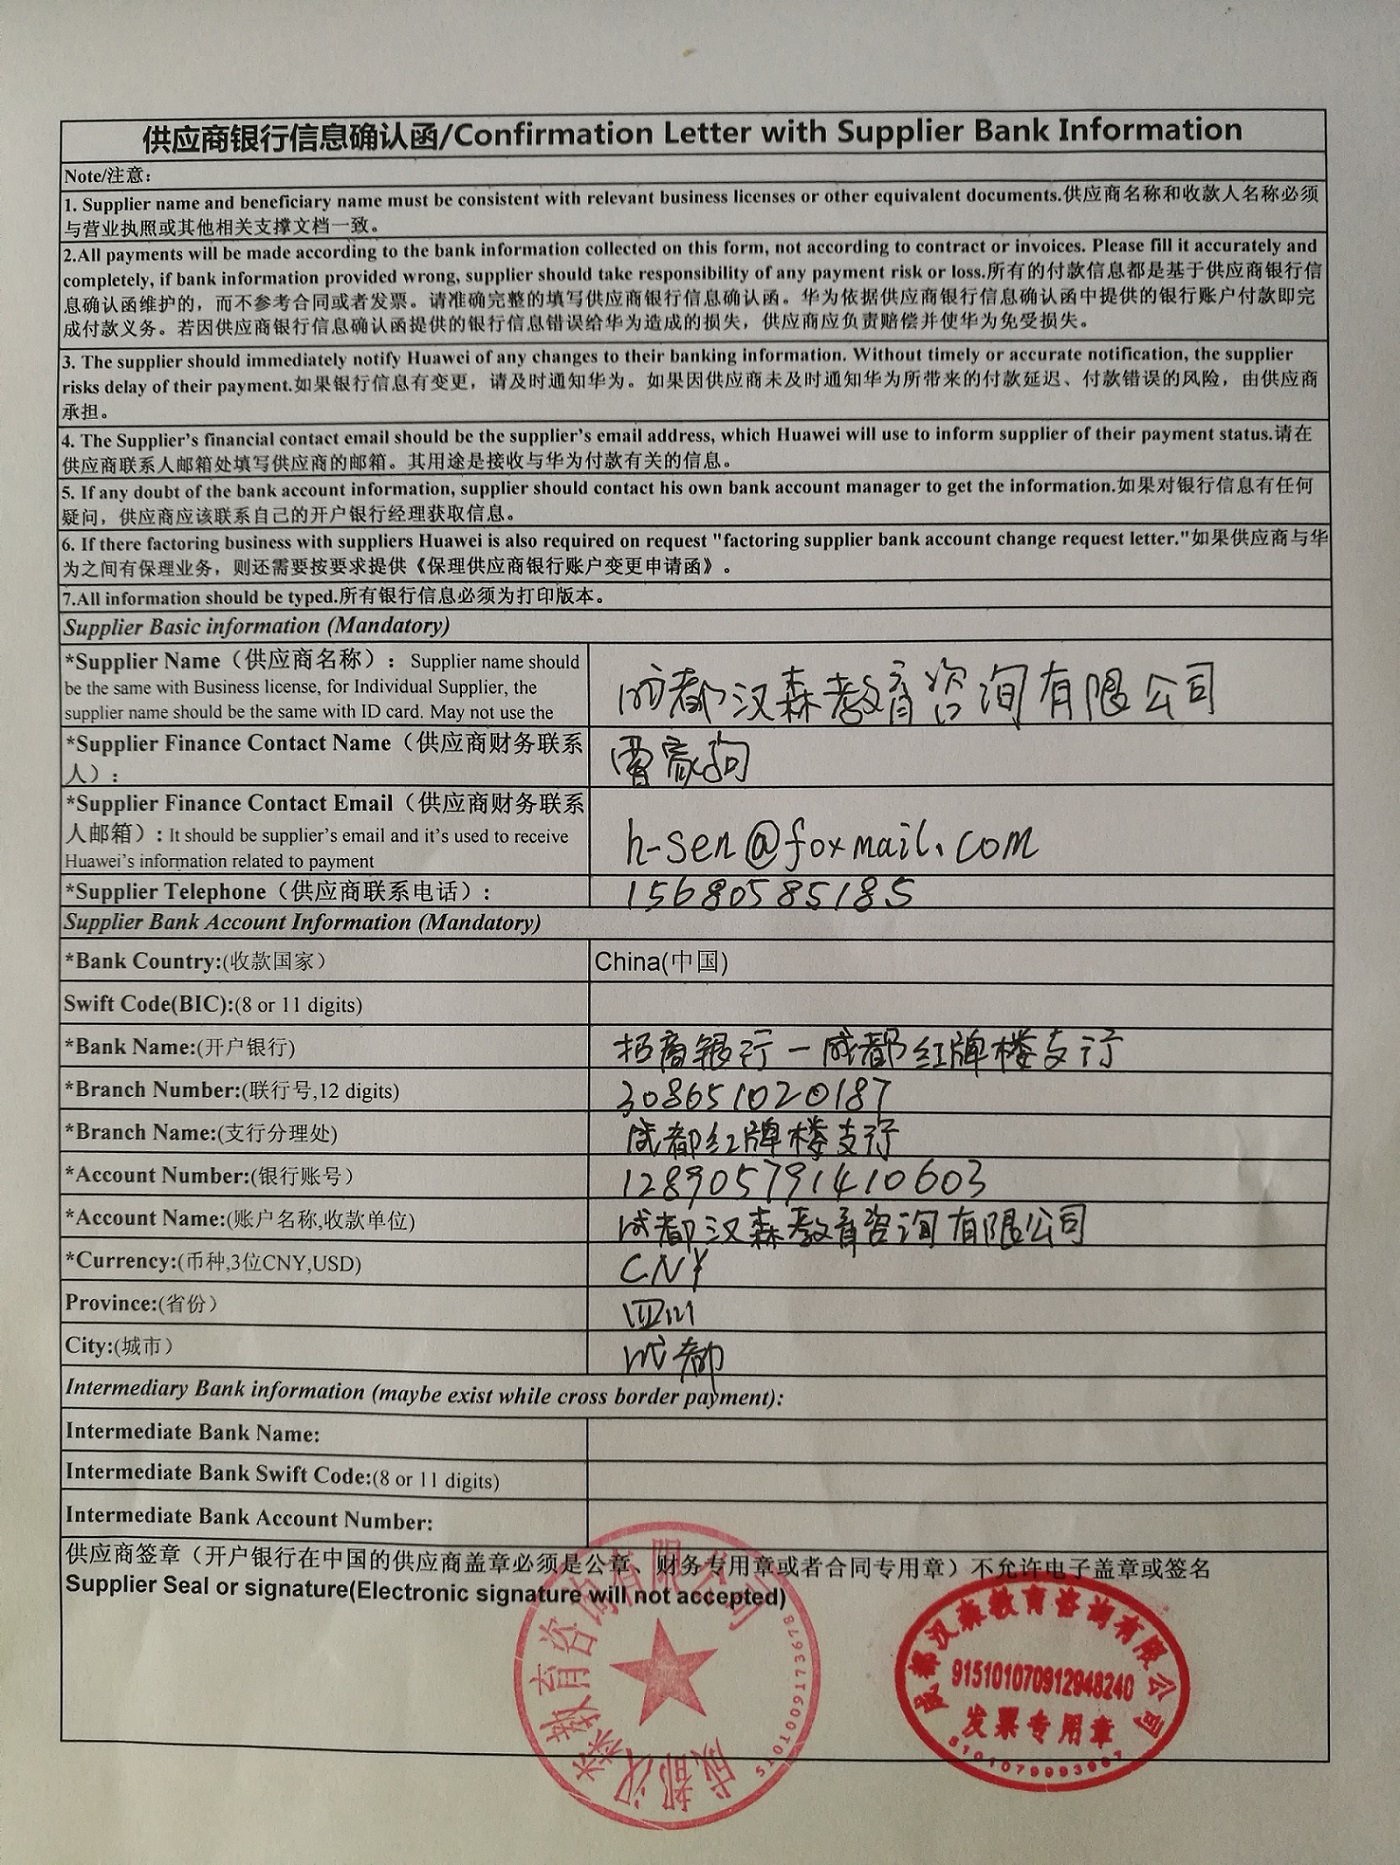 供应商银行信息确认函/Confirmation Letter with Supplier Bank Information
Note/注意：
1. Supplier name and beneficiary name must be consistent with relevant business licenses or other equivalent documents.供应商名称和收款人名称必须
与营业执照或其他相关支撑文档一致。
2.All payments will be made according to the bank information collected on this form, not according to contract or invoices. Please fill it accurately and
completely, if bank information provided wrong, supplier should take responsibility of any payment risk or loss.所有的付款信息都是基于供应商银行信
息确认函维护的，而不参考合同或者发票。请准确完整的填写供应商银行信息确认函。华为依据供应商银行信息确认函中提供的银行账户付款即完
成付款义务。若因供应商银行信息确认函提供的银行信息错误给华为造成的损失，供应商应负责赔偿并使华为免受损失。
3. The supplier should immediately notify Huawei of any changes to their banking information. Without timely or accurate notification, the supplier
risks delay of their payment.如果银行信息有变更，请及时通知华为。如果因供应商未及时通知华为所带来的付款延迟、付款错误的风险，由供应商
承担。
4. The Supplier's financial contact email should be the supplier's email address, which Huawei will use to inform supplier of their payment status.请在
供应商联系人邮箱处填写供应商的邮箱。其用途是接收与华为付款有关的信息。
5. If any doubt of the bank account information, supplier should contact his own bank account manager to get the information.如果对银行信息有任何
疑问，供应商应该联系自己的开户银行经理获取信息。
6. If there factoring business with suppliers Huawei is also required on request "factoring supplier bank account change request letter."如果供应商与华
为之间有保理业务，则还需要按要求提供《保理供应商银行账户变更申请函》。
7.All information should be typed.所有银行信息必须为打印版本。
Supplier Basic information (Mandatory)
*Supplier Name（供应商名称）：Supplier name should
be the same with Business license, for Individual Supplier, the
supplier name should be the same with ID card. May not use the
成都汉森教育咨询有限公司
*Supplier Finance Contact Name（供应商财务联系
人）：
*Supplier Finance Contact Email（供应商财务联系
人邮箱）：It should be supplier's email and it's used to receive
Huawei's information related to payment
h-sen@foxmail.com
*Supplier Telephone（供应商联系电话）： 15680585185
Supplier Bank Account Information (Mandatory)
*Bank Country:(收款国家） China(中国)
Swift Code(BIC):(8 or 11 digits)
*Bank Name:(开户银行) 招商银行-成都红牌楼支行
*Branch Number:(联行号,12 digits) 308651020187
*Branch Name:(支行分理处) 成都红牌楼支行
*Account Number:(银行账号） 128905791410603
*Account Name:(账户名称,收款单位) 成都汉森教育咨询有限公司
*Currency:(币种,3位CNY,USD) CNY
Province:(省份） 四川
City:(城市） 成都
Intermediary Bank information (maybe exist while cross border payment):
Intermediate Bank Name:
Intermediate Bank Swift Code:(8 or 11 digits)
Intermediate Bank Account Number:
供应商签章（开户银行在中国的供应商盖章必须是公章、财务专用章或者合同专用章）不允许电子盖章或签名
Supplier Seal or signature(Electronic signature will not accepted)
成都汉森教育咨询有限公司
5101009173678
成都汉森教育咨询有限公司
915101070912048240
发票专用章
5101079993967